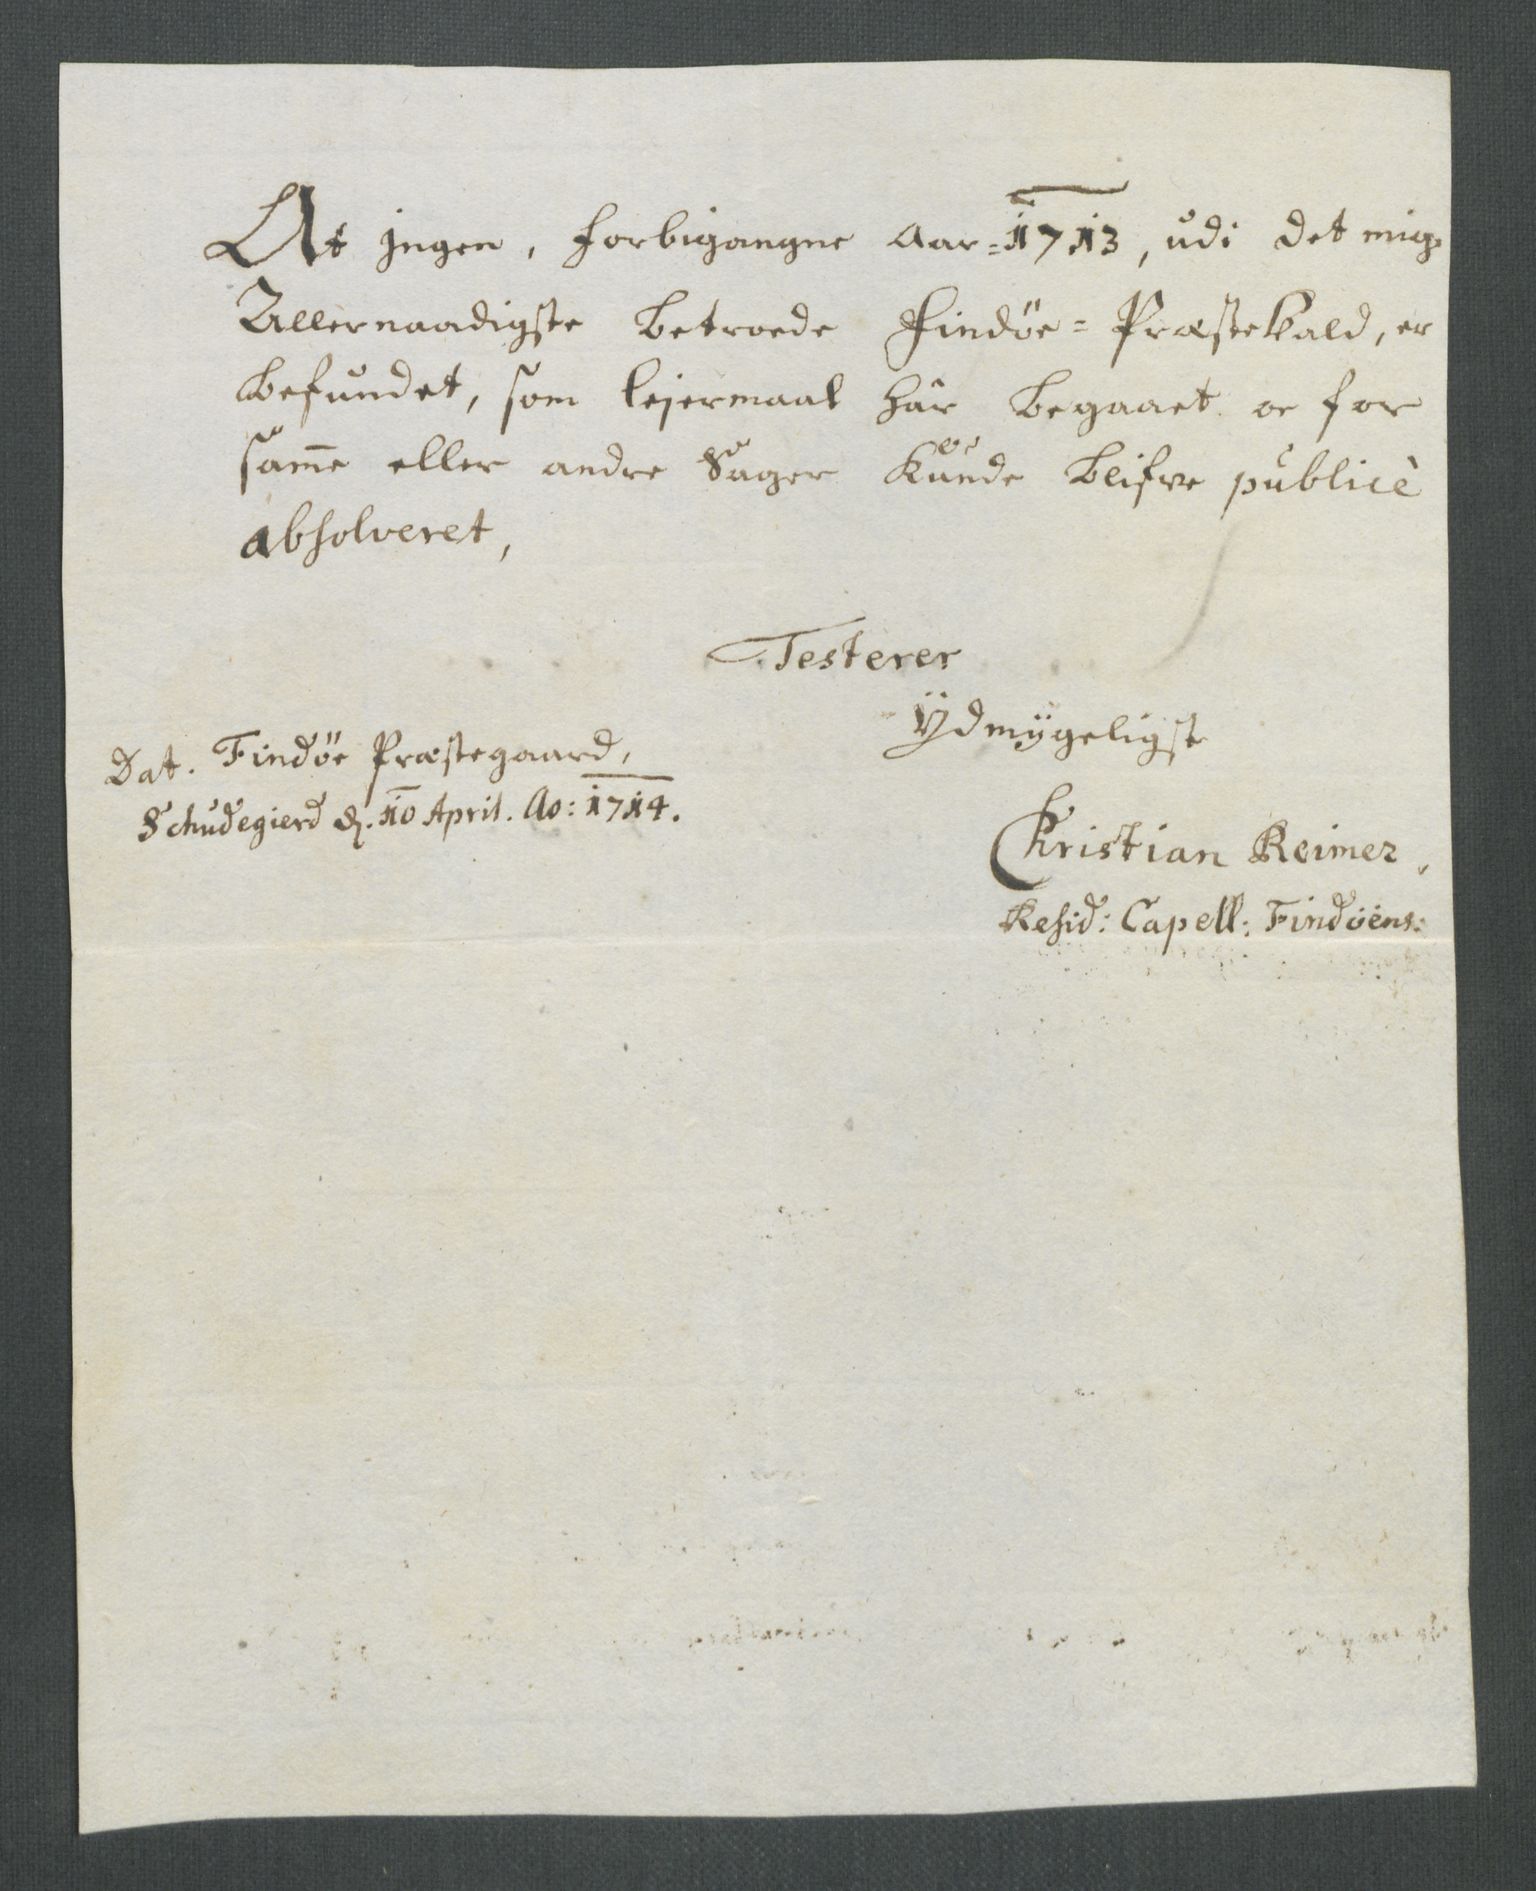 At jngen, forbigangne Aar=1713, udi det mig
Allernaadigste betroede Findöe=Præstekald, er
befundet, som lejermaal har begaaet oc for
same eller andre Sager kunde blifve publicè
absolveret,
Testerer
Ydmÿgeligst
Dat. Findöe Præstegaard,
Schudegierd d. 10 April. Ao: 1714.
Christian Reimer,
Resid: Capell: Findöens: